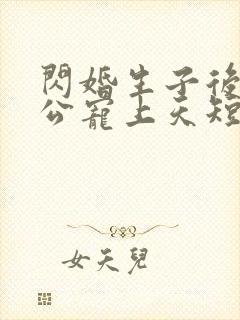 閃婚生子後
公寵上天短
女天兒